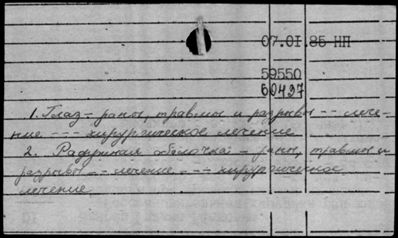 07.01.85 НП
59550
60497
1. Глаз - раны, травмы и разрывы -- лече-
ние --- хирургическое лечение
2. Радужная оболочка - раны, травмы и
разрывы -- лечение --- хирургическое
лечение